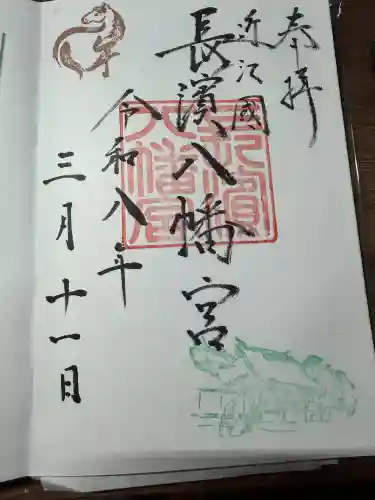 奉拝
近江國
長濱八幡宮
令和八年
三月十一日
長濱八幡宮